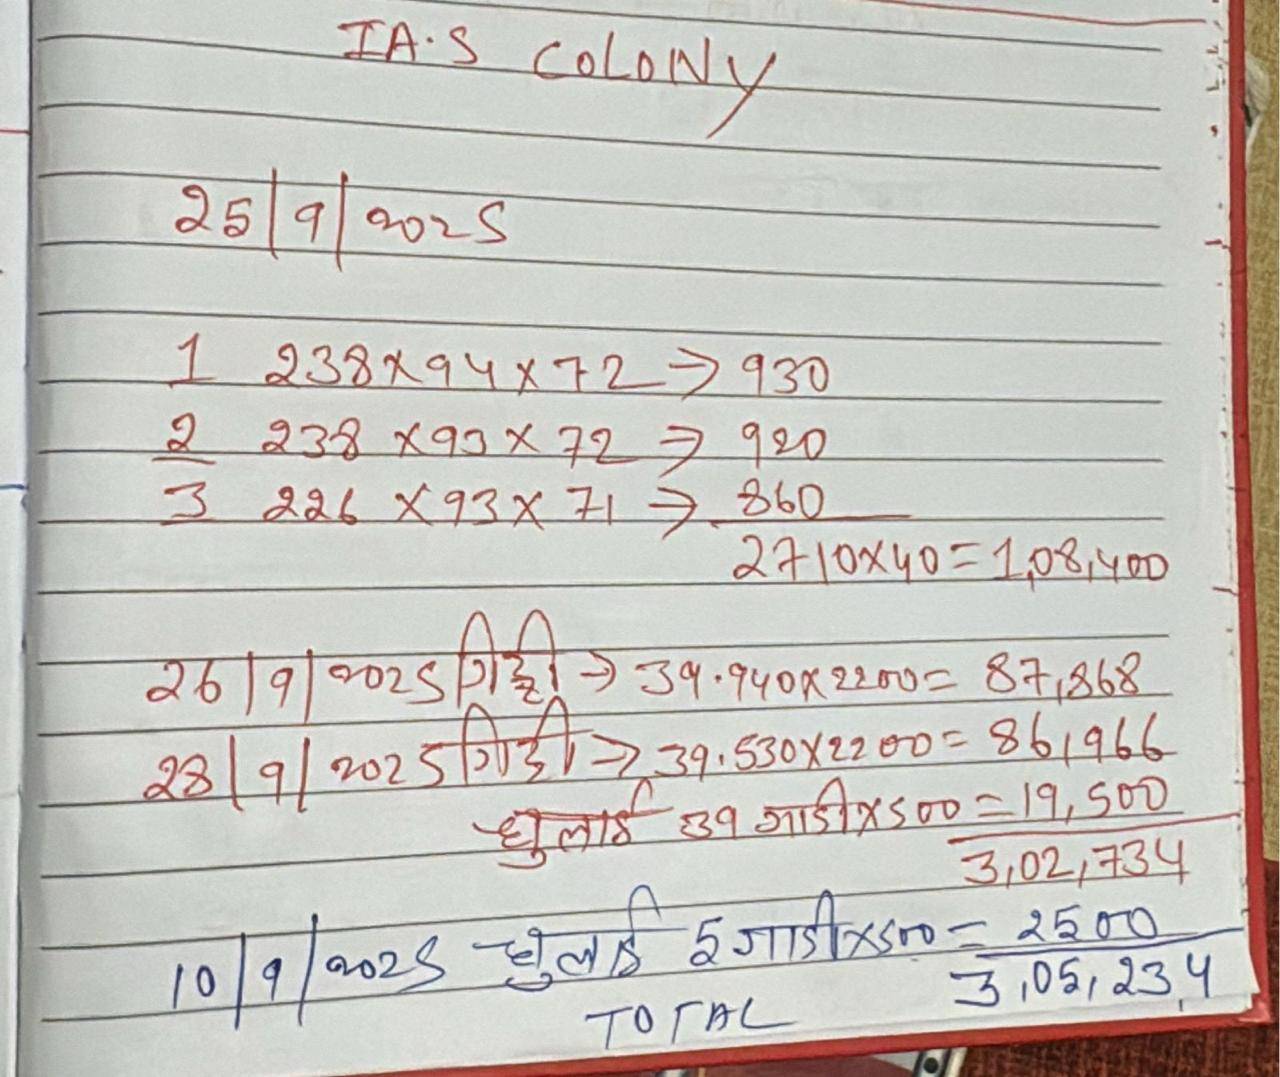 IA.S COLONY
25/9/2025
1 238×94×72 → 930
2 238×93×72 → 920
3 226×93×71 → 860
2710×40=1,08,400
26/9/2025 गिट्टी → 39.940×2200= 87,868
28/9/2025 गिट्टी → 39.530×2200= 86,966
धुलाई 39 गाडी×500=19,500
3,02,734
10/9/2025 धुलाई 5 गाडी×500= 2500
TOTAL 3,05,234